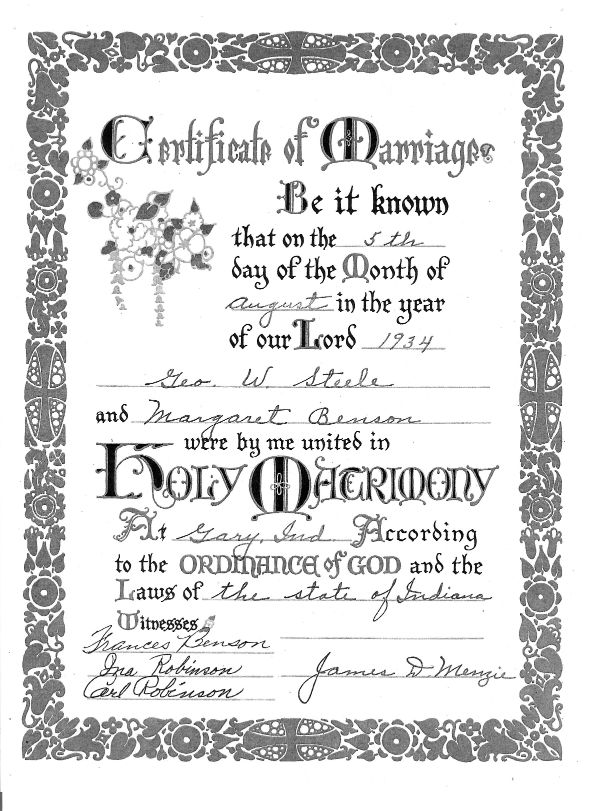 Certificate of Marriage
Be it known
that on the 5th
day of the Month of
August in the year
of our Lord 1934
Geo. W. Steele
and Margaret Benson
were by me united in
Holy Matrimony
At Gary, Ind According
to the ORDINANCE of GOD and the
Laws of the state of Indiana
Witnesses
Frances Benson
Ina Robinson
Carl Robinson
James D. Menzie